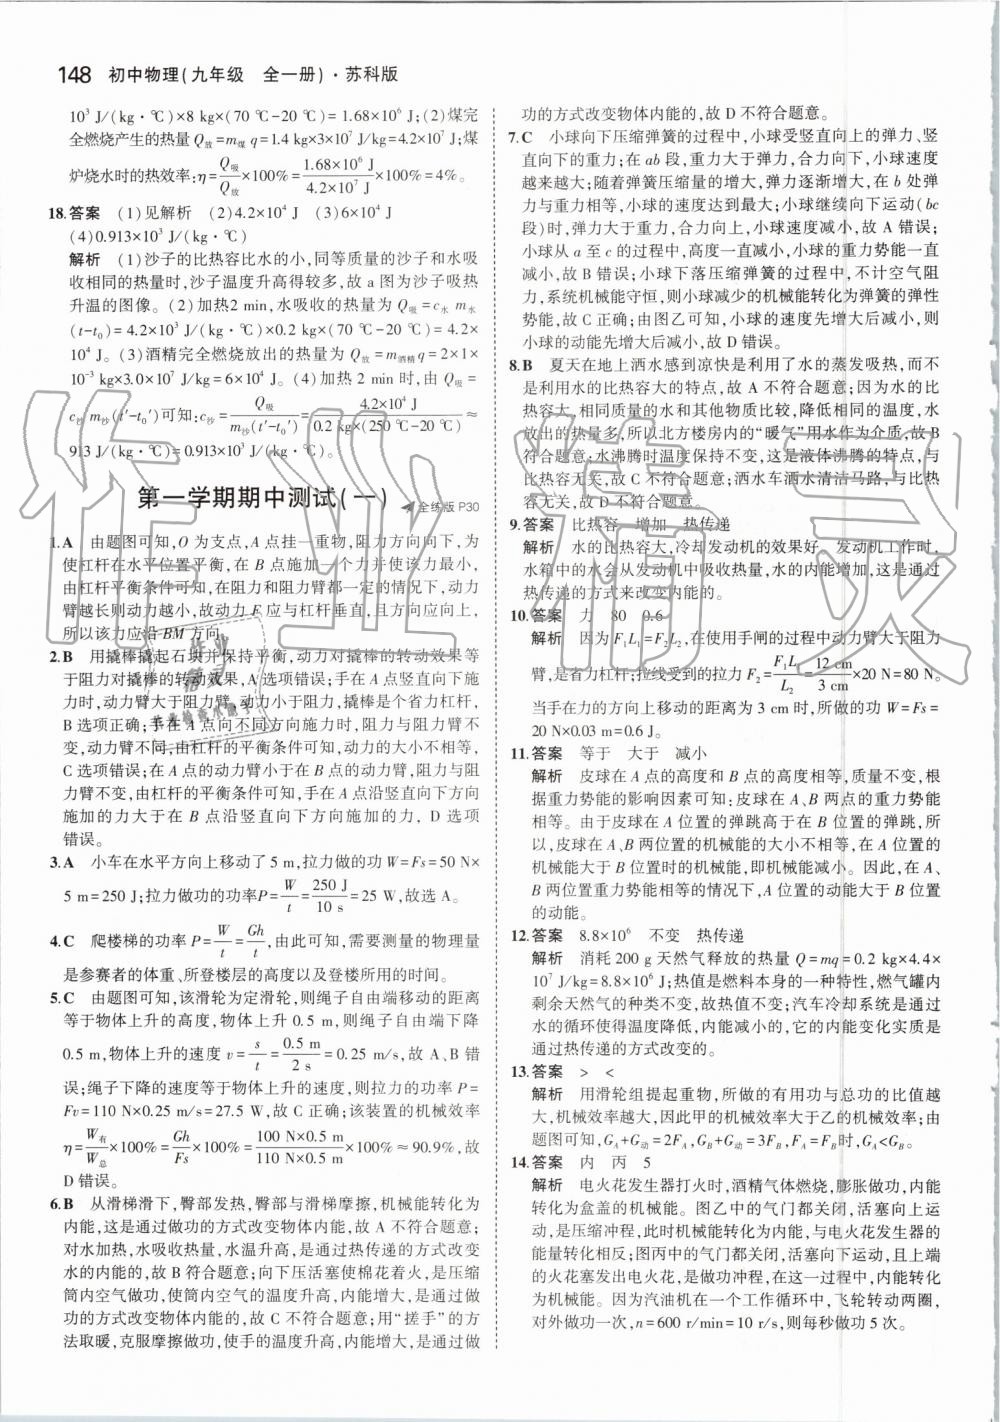 148 初中物理(九年级 全一册)·苏科版
10³ J/(kg·℃)×8 kg×(70 ℃-20 ℃)=1.68×10⁶ J;(2)煤完
全燃烧产生的热量 Q放=m煤 q=1.4 kg×3×10⁷ J/kg=4.2×10⁷ J;煤
炉烧水时的热效率:η=Q吸/Q放×100%=1.68×10⁶ J/4.2×10⁷ J×100%=4%。
18.答案 (1)见解析 (2)4.2×10⁴ J (3)6×10⁴ J
(4)0.913×10³ J/(kg·℃)
解析 (1)沙子的比热容比水的小,同等质量的沙子和水吸
收相同的热量时,沙子温度升高得较多,故 a 图为沙子吸热
升温的图像。(2)加热2 min,水吸收的热量为 Q吸=c水 m水
(t-t₀)=4.2×10³ J/(kg·℃)×0.2 kg×(70 ℃-20 ℃)=4.2×
10⁴ J。(3)酒精完全燃烧放出的热量为 Q放=m酒精 q=2×1×
10⁻³ kg×3.0×10⁷ J/kg=6×10⁴ J。(4)加热 2 min 时,由 Q吸=
c沙 m沙(t′-t₀′)可知:c沙=Q吸/m沙(t′-t₀′)=4.2×10⁴ J/0.2 kg×(250 ℃-20 ℃)≈
913 J/(kg·℃)=0.913×10³ J/(kg·℃)。
第一学期期中测试(一) 全练版 P30
1.A 由题图可知,O 为支点,A 点挂一重物,阻力方向向下,为
使杠杆在水平位置平衡,在 B 点施加一个力并使该力最小,
由杠杆平衡条件可知,在阻力和阻力臂都一定的情况下,动力
臂越长则动力越小,故动力 F 应与杠杆垂直,且方向应向上,
所以该力应沿 BM 方向。
2.B 用撬棒撬起石块并保持平衡,动力对撬棒的转动效果等
于阻力对撬棒的转动效果,A 选项错误;手在 A 点竖直向下施
力时,动力臂大于阻力臂,动力小于阻力,撬棒是省力杠杆,
B 选项正确;手在 A 点向不同方向施力时,阻力与阻力臂不
变,动力臂不同,由杠杆的平衡条件可知,动力的大小不相等,
C 选项错误;在 A 点的动力臂小于在 B 点的动力臂,阻力与阻
力臂不变,由杠杆的平衡条件可知,手在 A 点沿竖直向下方向
施加的力大于在 B 点沿竖直向下方向施加的力, D 选项
错误。
3.A 小车在水平方向上移动了 5 m,拉力做的功 W=Fs=50 N×
5 m=250 J;拉力做功的功率P=W/t=250 J/10 s=25 W,故选 A。
4.C 爬楼梯的功率 P=W/t=Gh/t,由此可知,需要测量的物理量
是参赛者的体重、所登楼层的高度以及登楼所用的时间。
5.C 由题图可知,该滑轮为定滑轮,则绳子自由端移动的距离
等于物体上升的高度,物体上升 0.5 m,则绳子自由端下降
0.5 m,物体上升的速度 v=s/t=0.5 m/2 s=0.25 m/s,故 A、B 错
误;绳子下降的速度等于物体上升的速度,则拉力的功率 P=
Fv=110 N×0.25 m/s=27.5 W,故 C 正确;该装置的机械效率
η=W有/W总×100%=Gh/Fs×100%=100 N×0.5 m/110 N×0.5 m×100%≈90.9%,故
D 错误。
6.B 从滑梯滑下,臀部发热,臀部与滑梯摩擦,机械能转化为
内能,这是通过做功的方式改变物体内能,故 A 不符合题意;
对水加热,水吸收热量,水温升高,是通过热传递的方式改变
水的内能的,故 B 符合题意;向下压活塞使棉花着火,是压缩
筒内空气做功,使筒内空气的温度升高,内能增大,是通过做
功的方式改变物体内能的,故 C 不符合题意;用“搓手”的方
法取暖,克服摩擦做功,使手的温度升高,内能增大,是通过做
功的方式改变物体内能的,故 D 不符合题意。
7.C 小球向下压缩弹簧的过程中,小球受竖直向上的弹力、竖
直向下的重力;在 ab 段,重力大于弹力,合力向下,小球速度
越来越大;随着弹簧压缩量的增大,弹力逐渐增大,在 b 处弹
力与重力相等,小球的速度达到最大;小球继续向下运动(bc
段)时,弹力大于重力,合力向上,小球速度减小,故 A 错误;
小球从 a 至 c 的过程中,高度一直减小,小球的重力势能一直
减小,故 B 错误;小球下落压缩弹簧的过程中,不计空气阻
力,系统机械能守恒,则小球减少的机械能转化为弹簧的弹性
势能,故 C 正确;由图乙可知,小球的速度先增大后减小,则
小球的动能先增大后减小,故 D 错误。
8.B 夏天在地上洒水感到凉快是利用了水的蒸发吸热,而不
是利用水的比热容大的特点,故 A 不符合题意;因为水的比
热容大,相同质量的水和其他物质比较,降低相同的温度,水
放出的热量多,所以北方楼房内的“暖气”用水作为介质,故B
符合题意;水沸腾时温度保持不变,这是液体沸腾的特点,与
比热容无关,故 C 不符合题意;洒水车洒水清洁马路,与比热
容无关,故 D 不符合题意。
9.答案 比热容 增加 热传递
解析 水的比热容大,冷却发动机的效果好。发动机工作时,
水箱中的水会从发动机中吸收热量,水的内能增加,这是通过
热传递的方式来改变内能的。
10.答案 力 80 0.6
解析 因为 F₁L₁=F₂L₂,在使用手闸的过程中动力臂大于阻力
臂,是省力杠杆;拉线受到的拉力 F₂=F₁L₁/L₂=12 cm/3 cm×20 N=80 N。
当手在力的方向上移动的距离为 3 cm 时,所做的功 W=Fs=
20 N×0.03 m=0.6 J。
11.答案 等于 大于 减小
解析 皮球在 A 点的高度和 B 点的高度相等,质量不变,根
据重力势能的影响因素可知:皮球在 A、B 两点的重力势能
相等。由于皮球在 A 位置的弹跳高于在 B 位置的弹跳,所
以,皮球在 A、B 两位置的机械能的大小不相等,在 A 位置的
机械能大于 B 位置时的机械能,即机械能减小。因此,在 A、
B 两位置重力势能相等的情况下,A 位置的动能大于 B 位置
的动能。
12.答案 8.8×10⁶ 不变 热传递
解析 消耗 200 g 天然气释放的热量 Q=mq=0.2 kg×4.4×
10⁷ J/kg=8.8×10⁶ J;热值是燃料本身的一种特性,燃气罐内
剩余天然气的种类不变,故热值不变;汽车冷却系统是通过
水的循环使得温度降低,内能减小的,它的内能变化实质是
通过热传递的方式改变的。
13.答案 > <
解析 用滑轮组提起重物,所做的有用功与总功的比值越
大,机械效率越大,因此甲的机械效率大于乙的机械效率;由
题图可知,G_A+G动=2F_A,G_B+G动=3F_B,F_A=F_B时,G_A<G_B。
14.答案 内 丙 5
解析 电火花发生器打火时,酒精气体燃烧,膨胀做功,内能
转化为盒盖的机械能。图乙中的气门都关闭,活塞向上运动,
是压缩冲程,此时机械能转化为内能,与电火花发生器的
能量转化相同;图丙中的气门都关闭,活塞向下运动,且上端
的火花塞发出电火花,是做功冲程,在这一过程中,内能转化
为机械能。因为汽油机在一个工作循环中,飞轮转动两圈,
对外做功一次,n=600 r/min=10 r/s,则每秒做功 5 次。
作业精灵